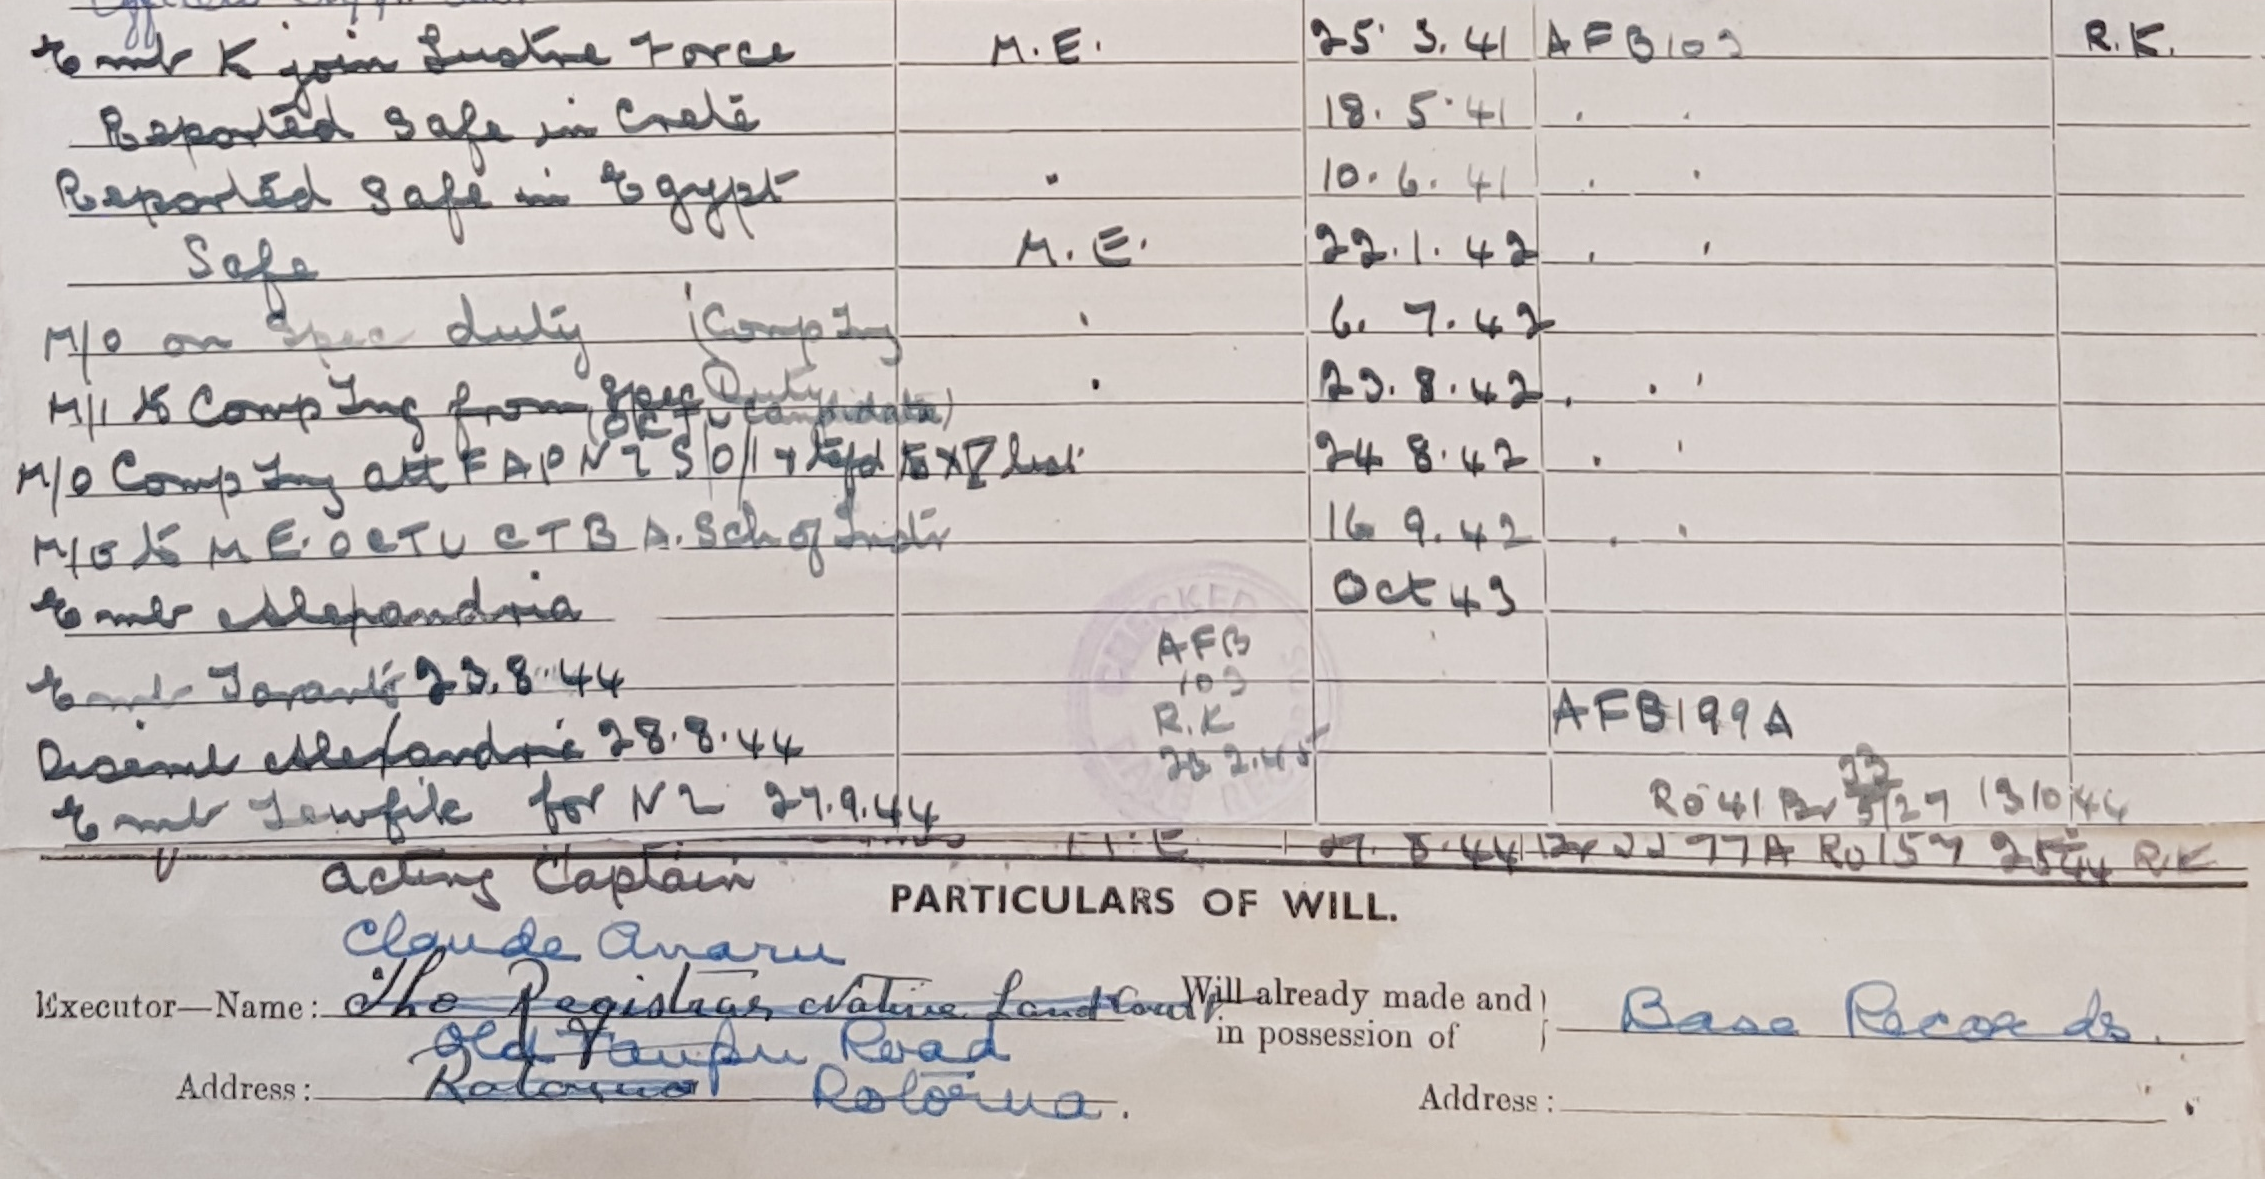 Emb to join Lustre Force M.E. 25. 3. 41 AFB103 R.K.
Reported Safe in Crete 18. 5. 41 " "
Reported Safe in Egypt " 10. 6. 41 " "
Safe M.E. 22. 1. 42 " "
M/O on Spec duty (Comp Ing " 6. 7. 42
M/I to Comp Ing from Spec Duty " 23. 8. 42 " "
(OCTU Candidate)
M/O Comp Ing att FAP NZ S/O/1 & tsfd to XV list 24 8. 42 " "
M/O to M.E. OCTU CTBA. Sch of Instr 16 9. 42 " "
Emb Alexandria Oct 43
CHECKED
AFB
103
Emb Taranto 23.8.44
R.K AFB199A
Disemb Alexandria 28.8.44
23 2.45
BASE RECORDS
Emb Tewfik for NZ 27.9.44 Ro 41 13/10/44
M.E 8.44 77A Ro 157 R.K
acting Captain
PARTICULARS OF WILL.
Claude Anaru
Executor—Name: The Registrar Native Land Court Will already made and
in possession of Base Records.
Old Taupo Road
Address: Rotorua Rotorua. Address: